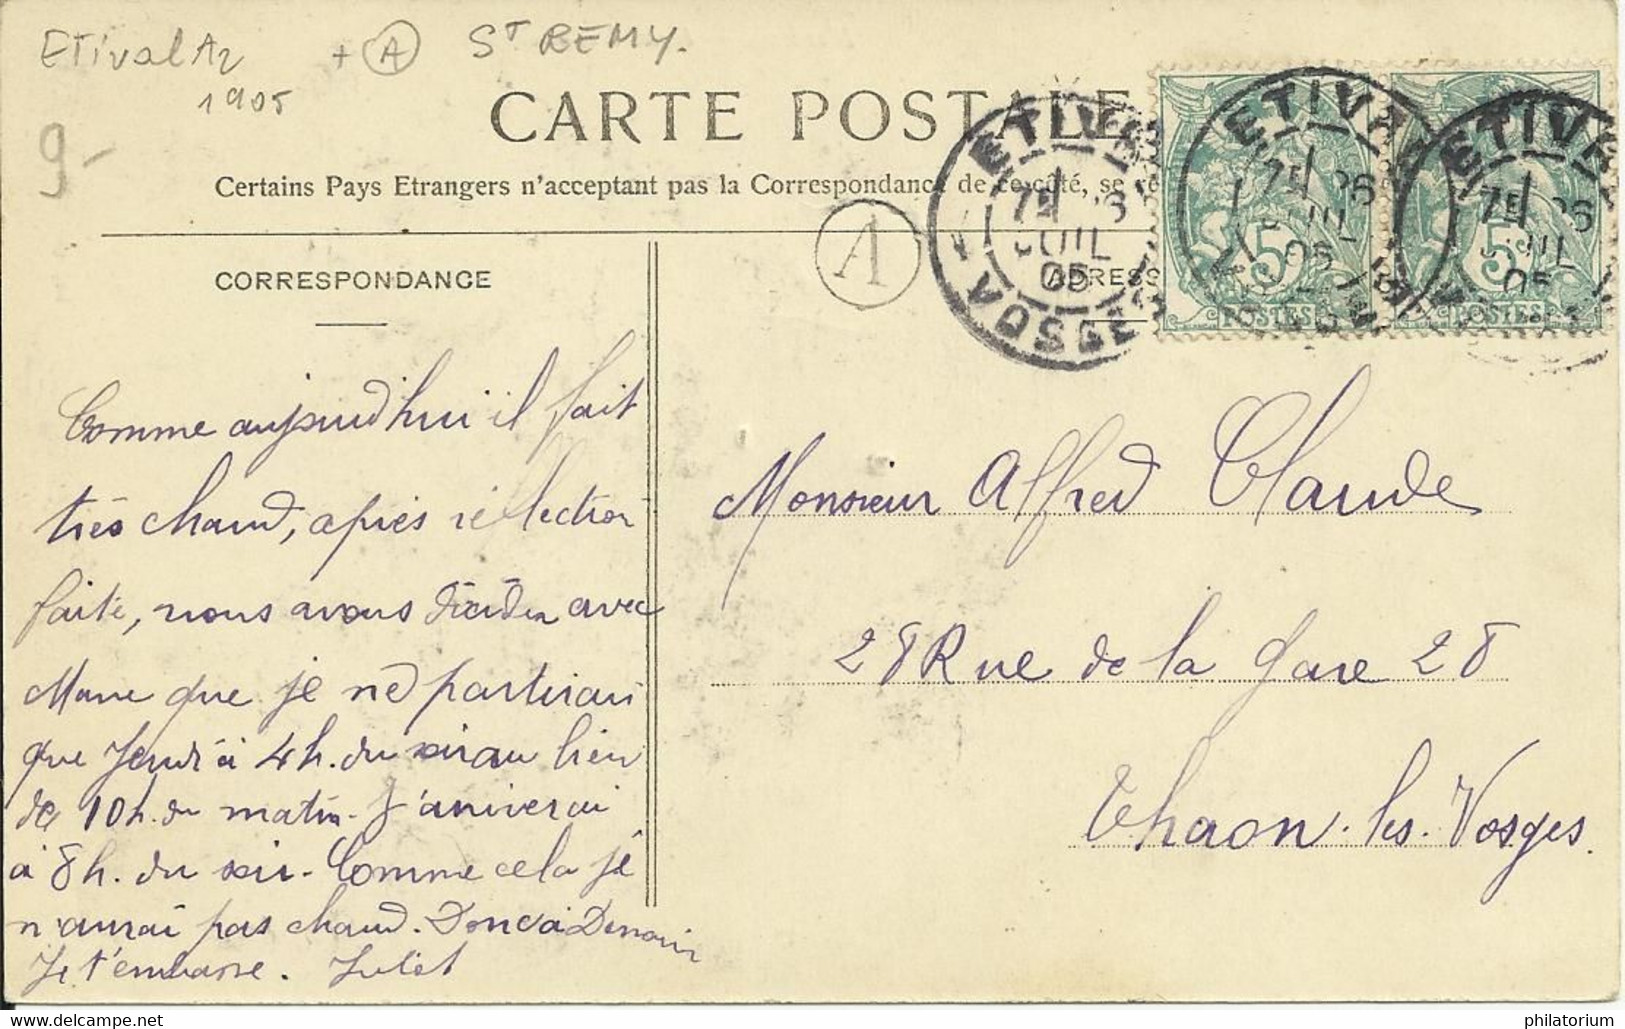 Etival A2
1905
+ A
ST REMY.
9-
CARTE POSTALE
Certains Pays Etrangers n'acceptant pas la Correspondance de ce côté, se
CORRESPONDANCE
A
ADRESS
ETIVA
7E 26
JUIL
05
VOSGES
ETIVA
7E 26
JUIL
05
ETIVA
7E 26
JUIL
05
5
POSTES
5
POSTES
Comme aujourd'hui il fait
très chaud, après réflection
faite, nous avons décider avec
que je ne partirai
que Jeudi à 4h. du soir au lieu
de 10h. du matin. J'arriverai
à 8h. du soir. Comme cela je
n'aurai pas chaud. Donc à Demain
Je t'embrasse.
Monsieur Alfred Claude
28 Rue de la Gare 28
Thaon-les-Vosges.
philatorium